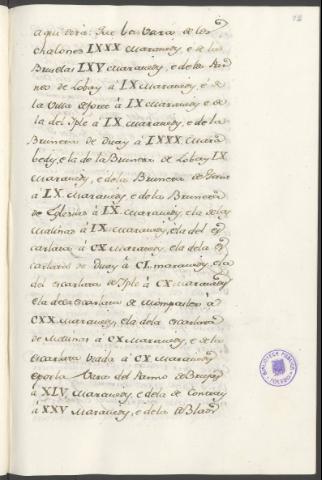 aqui será: Que las Varas de los
chalones LXXX Maravedis, e de las
Bruselas LXV Maravedis, e de la
de Lobay à IX Maravedis, é de
la Villa à IX Maravedis e de
la del Iple à IX Maravedis, e de la
Bruneta de Duay à LXXX Mara
bedis, e la de la Bruneta de Lobay IX
Maravedis, e de la Bruneta de
à IX Maravedis, e de la Bruneta
de à IX Maravedis, e la de las
Malinas à IX Maravedis, e la del es
carlata à CX Maravedis, e la de la es
carlata de Duay à CL maravedis, e la
del escarlata de Iple à CX maravedis
e la de escarlata de Mompasler à
CXX Maravedis, e la de la escarlata
de Malinas à CX Maravedis, e de la
escarlata à CX Maravedis
e por la Vara del Panno de Brujas
à XLV Maravedis, e de la de
à XXV Maravedis, e de la
BIBLIOTECA PUBLICA
TOLEDO